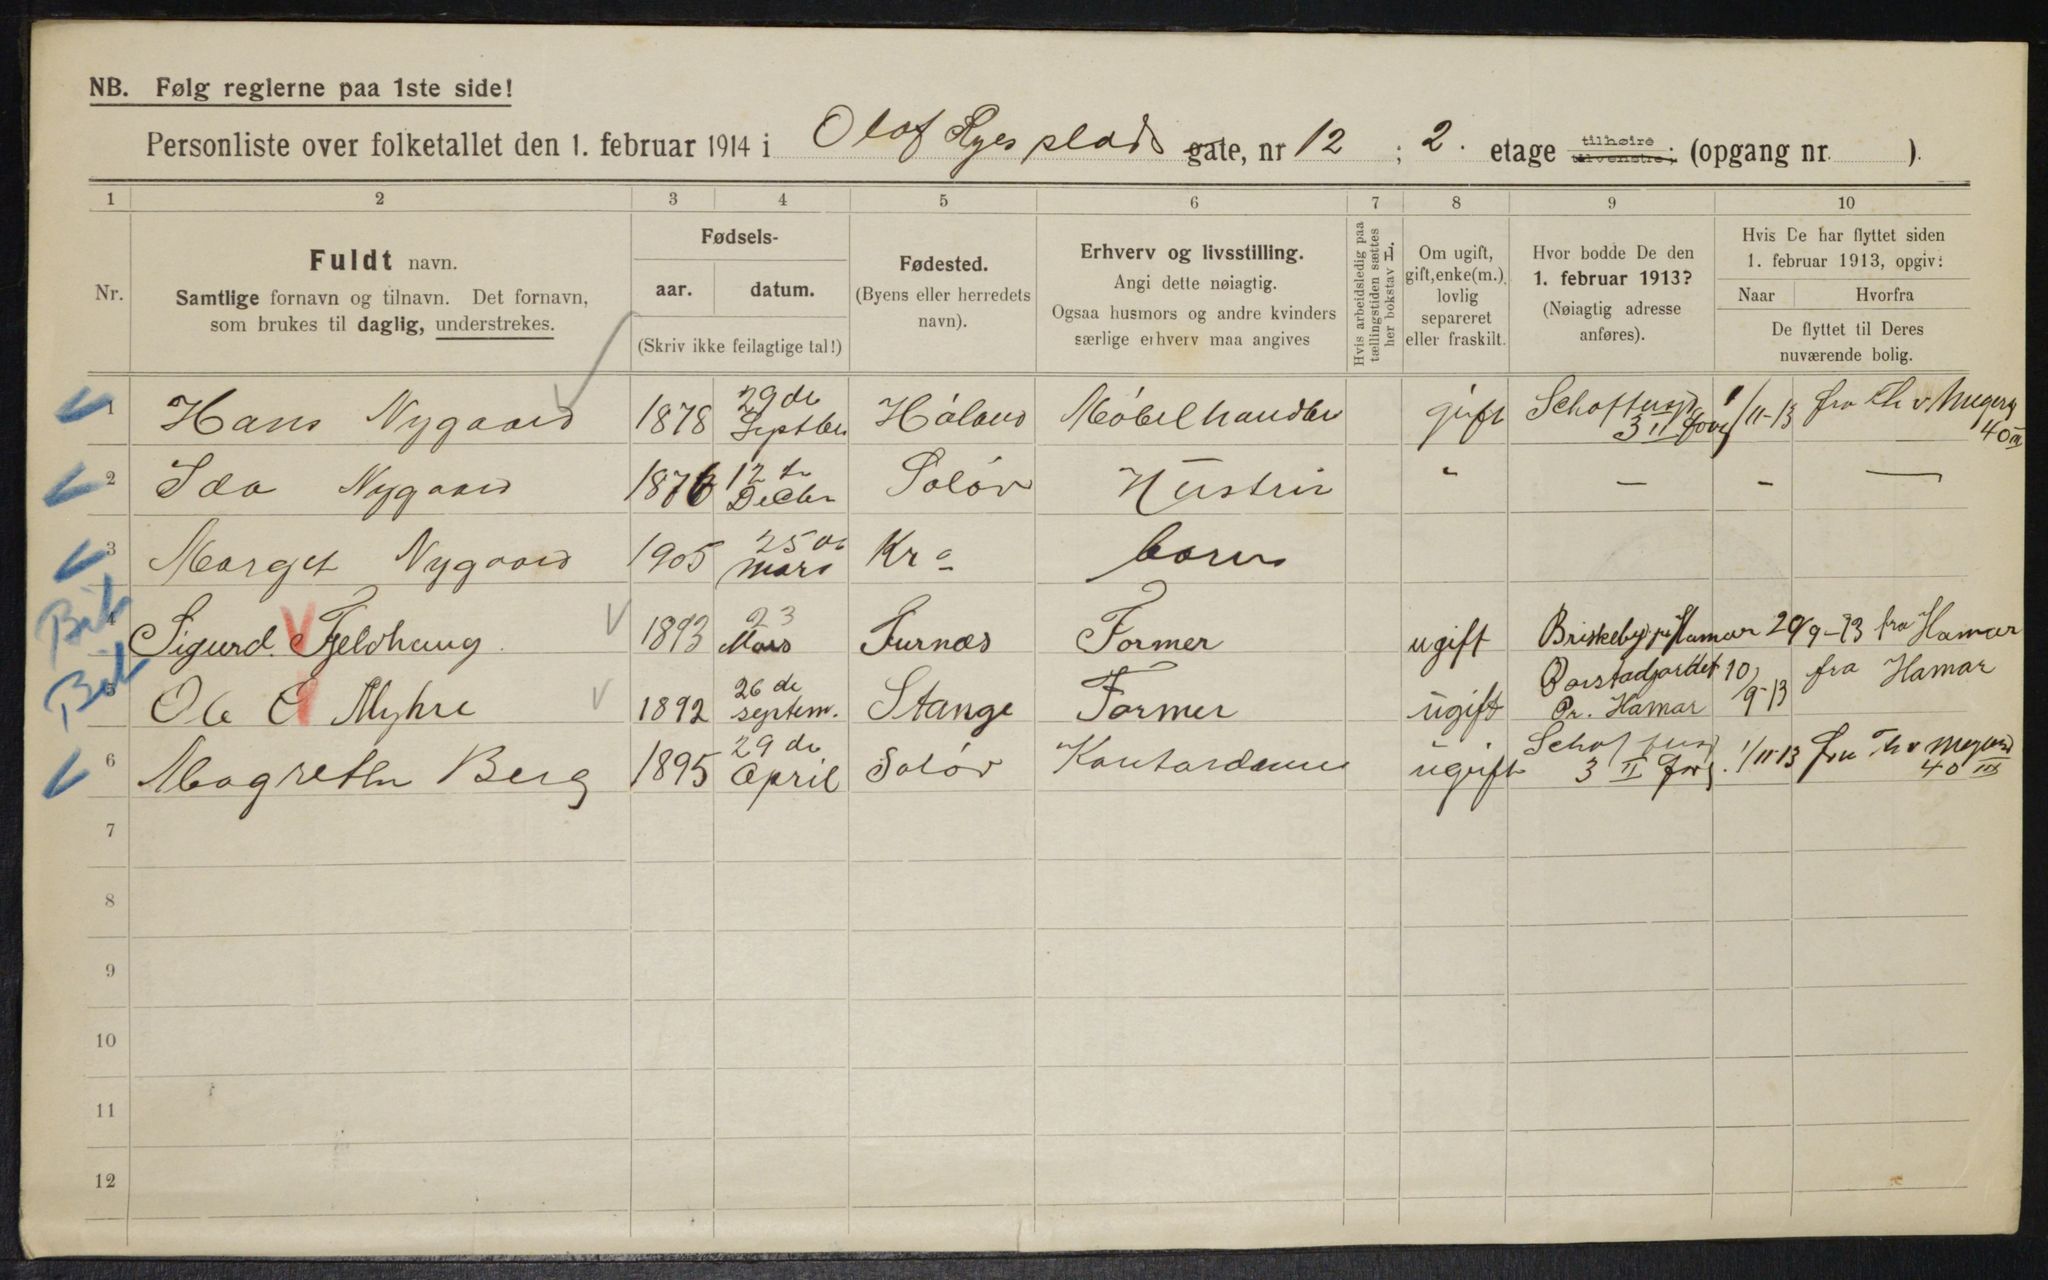 NB. Følg reglerne paa 1ste side!
Personliste over folketallet den 1. februar 1914 i Olaf Ryes plads gate, nr 12 ; 2. etage tilhøire tilvenstre; (opgang nr. ).
1 2 3 4 5 6 7 8 9 10
Nr.
Fuldt navn.
Samtlige fornavn og tilnavn. Det fornavn,
som brukes til daglig, understrekes.
Fødsels-
aar. datum.
(Skriv ikke feilagtige tal!)
Fødested.
(Byens eller herredets
navn).
Erhverv og livsstilling.
Angi dette nøiagtig.
Ogsaa husmors og andre kvinders
særlige erhverv maa angives
Hvis arbeidsledig paa
tællingstiden sættes
her bokstav L.
Om ugift,
gift, enke(m.),
lovlig
separeret
eller fraskilt.
Hvor bodde De den
1. februar 1913?
(Nøiagtig adresse
anføres).
Hvis De har flyttet siden
1. februar 1913, opgiv:
Naar Hvorfra
De flyttet til Deres
nuværende bolig.
1 Hans Nygaard 1878 29de Septber Høland Møbelhandler gift 3 II 1/11-13 fra Th v Megens 40 III
2 Ida Nygaard 1876 12te Decbr Soløv Hustru " – – —
3 Marget Nygaard 1905 25de Mars Kra barn
Bit 4 Sigurd. Fjeldhaug. 1893 23 Mars Furnæs Former ugift Briskeby pr Hamar 29/9-13 fra Hamar
Bit 5 Ole O Myhre 1892 26de septem. Stange Former ugift Pr. Hamar 10/9-13 fra Hamar
6 Magrethe Berg 1895 29de April Soløv Kontordame ugift 3 II 1/11-13 fra Th v Megens 40 III
7
8
9
10
11
12